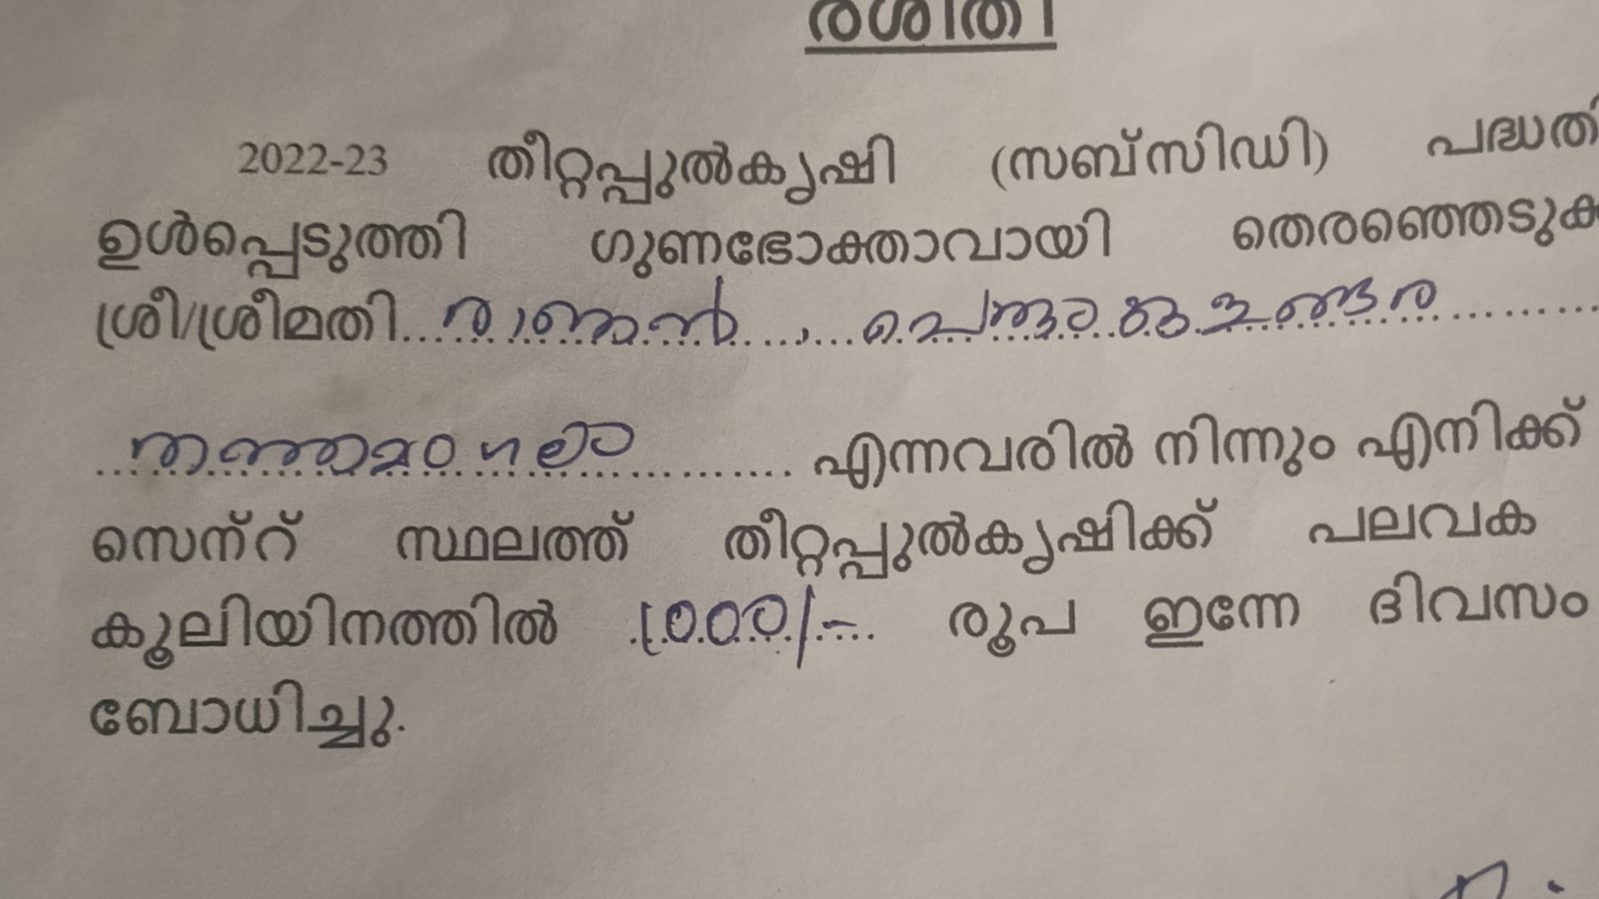 രശീതി
2022-23 തീറ്റപ്പുൽകൃഷി (സബ്സിഡി) പദ്ധതി
ഉൾപ്പെടുത്തി ഗുണഭോക്താവായി തെരഞ്ഞെടുക
ശ്രീ/ശ്രീമതി രാജൻ,
തത്തമംഗലം എന്നവരിൽ നിന്നും എനിക്ക്
സെന്റ് സ്ഥലത്ത് തീറ്റപ്പുൽകൃഷിക്ക് പലവക
കൂലിയിനത്തിൽ 1000/- രൂപ ഇന്നേ ദിവസം
ബോധിച്ചു.